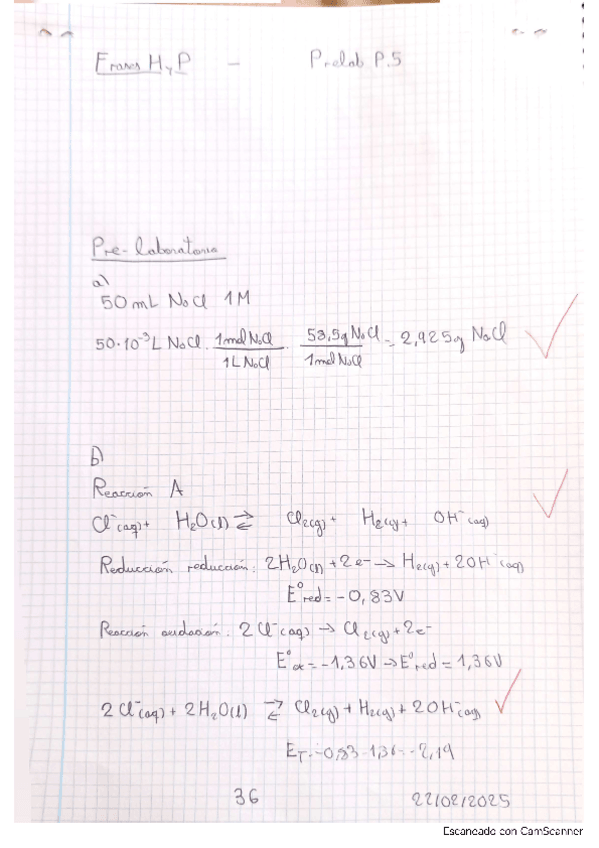 Frases H y P - Prelab P.5
Pre-laboratorio
a)
50 mL NaCl 1M
50·10⁻³L NaCl · 1mol NaCl / 1L NaCl · 58,5g NaCl / 1mol NaCl = 2,925g NaCl
b)
Reacción A
Cl⁻(aq) + H₂O(l) ⇄ Cl₂(g) + H₂(g) + OH⁻(aq)
Reducción reducción: 2H₂O(l) + 2e⁻ → H₂(g) + 2OH⁻(aq)
E°red = -0,83V
Reacción oxidación: 2Cl⁻(aq) → Cl₂(g) + 2e⁻
E°ox = -1,36V → E°red = 1,36V
2Cl⁻(aq) + 2H₂O(l) ⇄ Cl₂(g) + H₂(g) + 2OH⁻(aq)
E_T = -0,83 - 1,36 = -2,19
36 22/02/2025
Escaneado con CamScanner